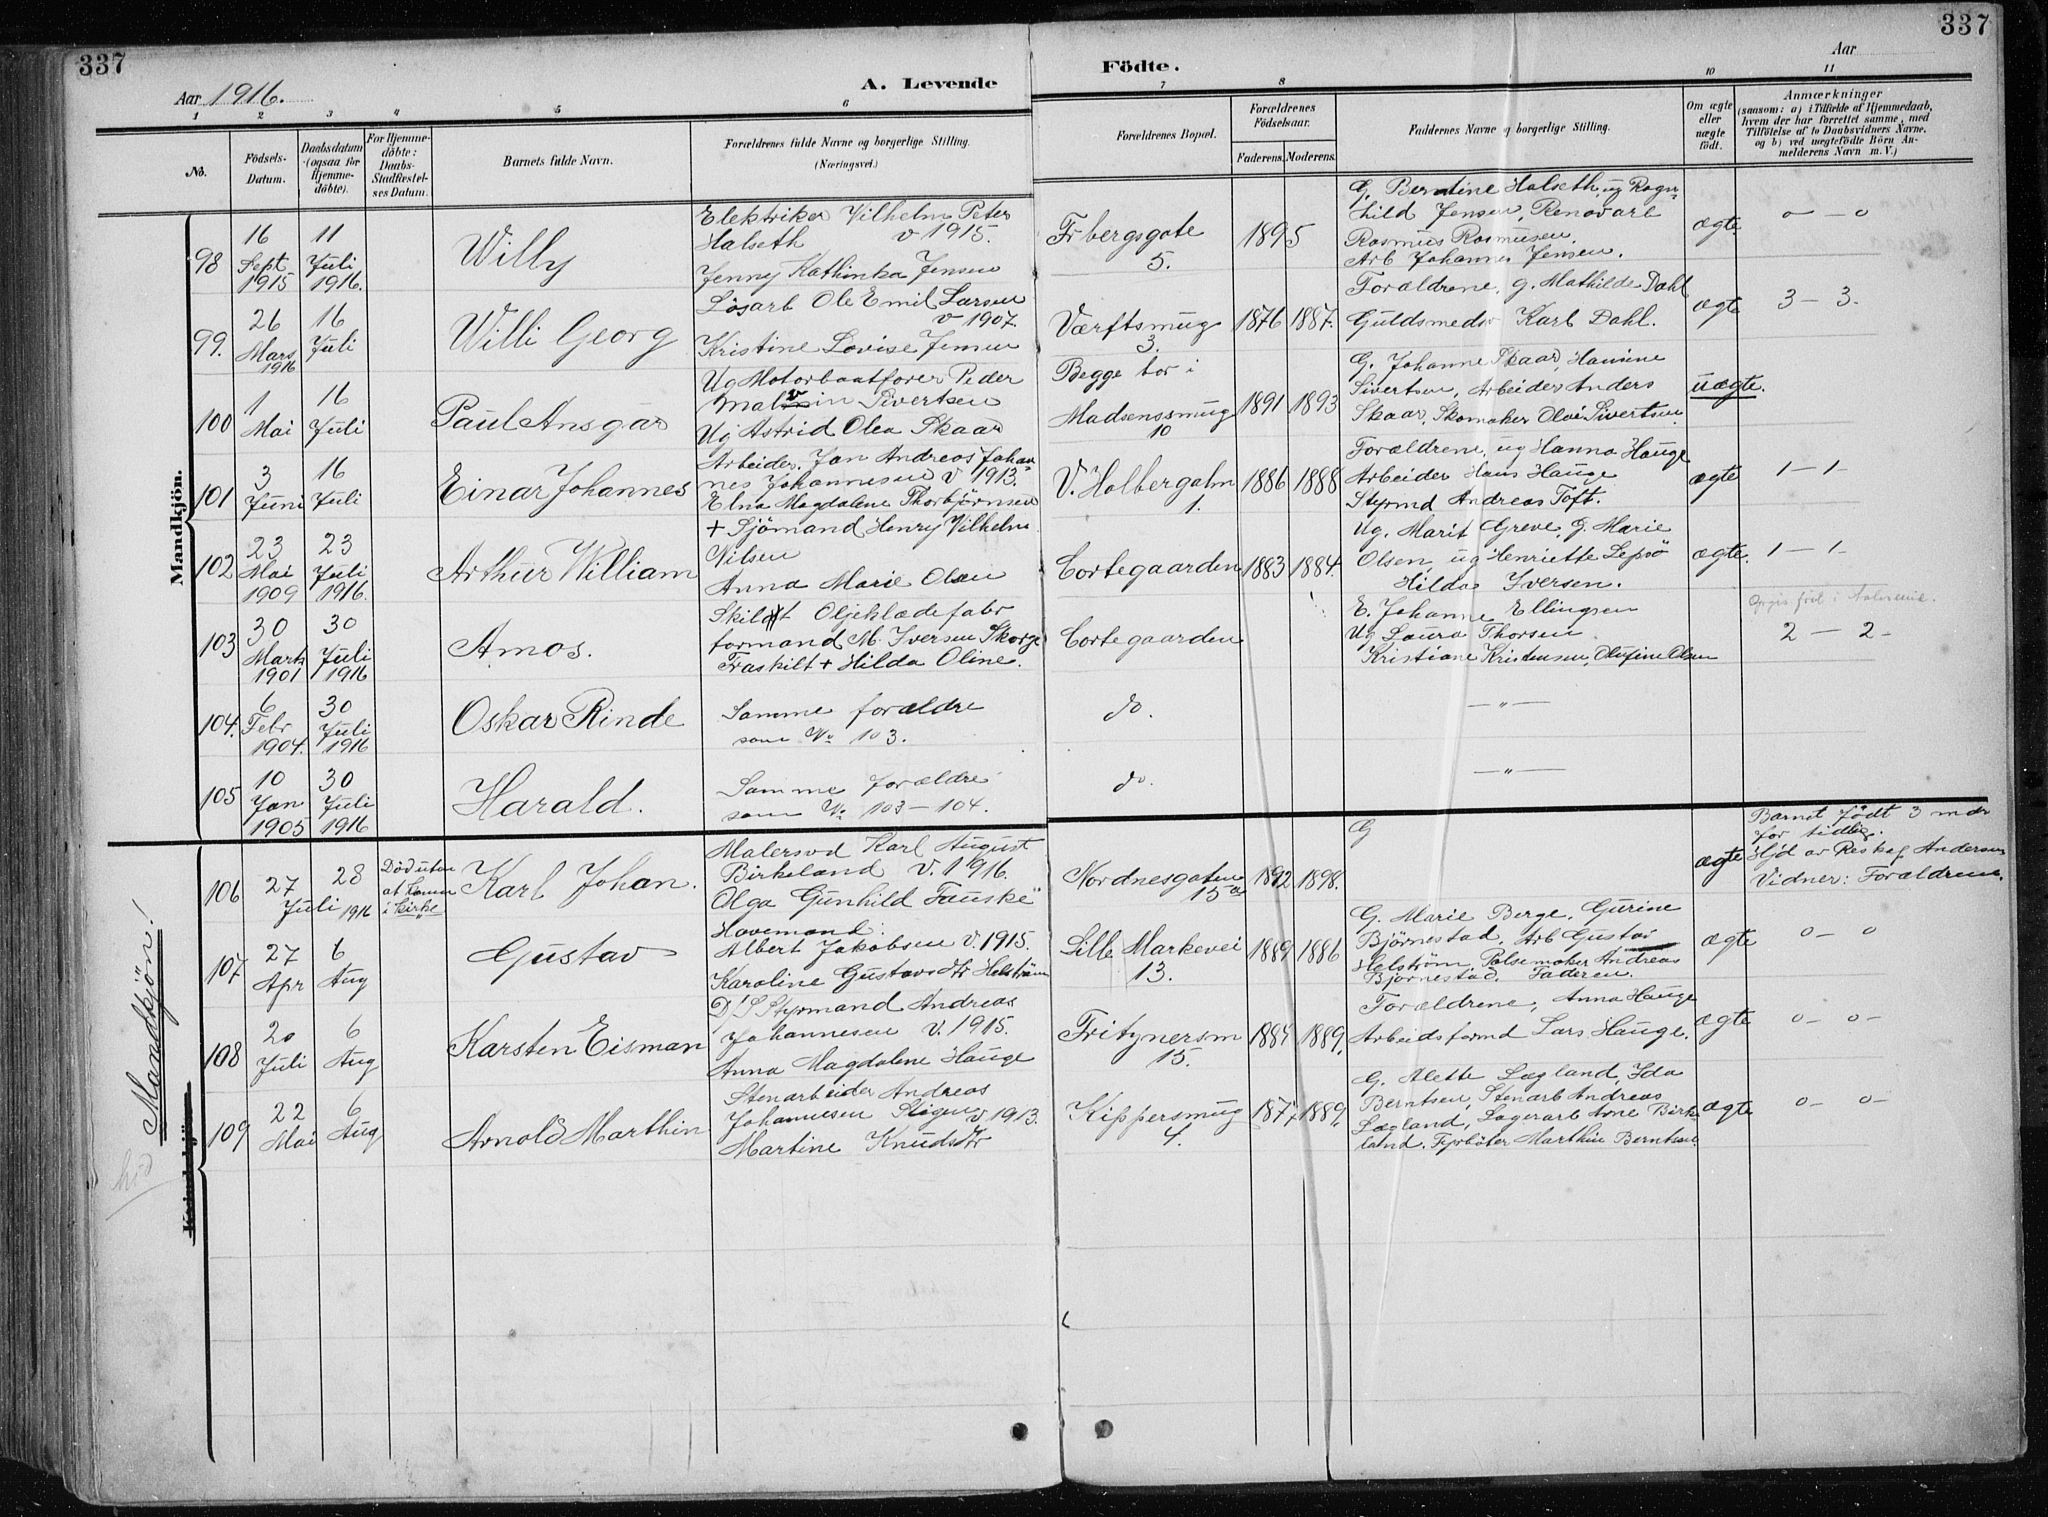 337
337
Aar 1916.
A. Levende
Födte.
Aar
1
2
3
4
5
6
7
8
10
11
No.
Födsels-
Datum.
Daabsdatum
(ogsaa for
Hjemme-
döbte).
For Hjemme-
döbte:
Daabs-
Stadfæstel-
ses Datum.
Barnets fulde Navn.
Forældrenes fulde Navne og borgerlige Stilling.
(Næringsvei.)
Forældrenes Bopæl.
Forældrenes
Födselsaar.
Faderens.
Moderens.
Faddernes Navne og borgerlige Stilling.
Om ægte
eller
uægte
födt.
Anmærkninger
(saasom: a) i Tilfælde af Hjemmedaab,
hvem der har forrettet samme, med
Tilföielse af to Daabsvidners Navne,
og b) ved uægtefödte Börn An-
melderens Navn m. V.)
Mandkjön.
98
16
Sept
1915
11
Juli
1916.
Willy
Elektriker Vilhelm Peter
Halseth v 1915.
Jenny Kathinka Jensen
Fr bergsgate
5.
1895
G. Berntine Halseth ug Ragn-
hild Jensen, Renovarb
Rasmus Rasmusen,
Arb Johannes Jensen.
ægte.
o — o
99.
26
Mars
1916
16
Juli
Willi Georg
Lösarb Ole Emil Larsen
v 1907.
Kristine Lovise Jensen
Værftsmug
3.
1876
1887.
Forældrene, g. Mathilde Dahl
Guldsmedsv Karl Dahl.
ægte
3 — 3.
100
1
Mai
16
Juli
Paul Ansgar
Ug Motorbaatförer Peder
Malvin Sivertsen
Ug Astrid Olea Skaar
Begge bor i
Madsensmug
10
1891
1893
G. Johanne Skaar, Hansine
Sivertsen, Arbeider Anders
Skaar, Skomaker Olai Sivertsen
uægte.
101
3
Juni
16
Juli
Einar Johannes
Arbeider. Jan Andreas Johan-
nes Johannesen v 1913.
Elna Magdalene Thorbjörnsen
V. Holbergalm
1.
1886
1888
Forældrene, ug Hanna Hauge
Arbeider Hans Hauge
Styrmd Andreas Toft.
ægte
1 — 1 -
102
23
Mai
1909
23
Juli
1916.
Arthur William
+ Sjömand Henry Vilhelm
Nilsen
Anna Marie Olsen
Cortegaarden
1883
1884.
Ug. Marit Greve, G. Marie
Olsen, ug Henriette Lepsö
Hilda Iversen.
ægte.
1 — 1 -
103
30
Marts
1901
30
Juli
1916
Amos.
Skilt Oljeklædefabr
formand M. Iversen Skorge
Fraskilt + Hilda Oline.
Cortegaarden
E. Johanne Ellingsen
Ug Laura Thorsen
Kristiane Kristensen, Olufine Olsen
2 — 2 -
104.
6
Febr
1904.
30
Juli
1916
Oskar Rinde
Samme forældre
som No 103.
do.
— " —
105
10
Jan
1905
30
Juli
1916
Harald.
Samme forældre
som No 103 — 104.
do.
— " —
Mandkjön!
Kvindekjön.
106
27
Juli
28
1916
Död uten
at komme
i kirke
Karl Johan.
Malersvd Karl August
Birkeland v. 1916.
Olga Gunhild Fauske
Nordnesgaten
15a
1892
1898.
G
ægte
Barnet födt 3 mdr
for tidlig.
Hjd av Reskap Andersen
Vidner: Forældrene.
107
27
Apr
6
Aug
Gustav
Havemand:
Albert Jakobsen v. 1915.
Karoline Gustavsdtr Helström
Lille Markevei
13.
1889
1886
G. Marie Berge, Gurine
Björnestad, Arb Gustav
Helström, Pölsemaker Andreas
Björnestad. Faderen.
ægte
o — o
108
20
Juli
6
Aug
Karsten Eisman
D/S Styrmand Andreas
Johannesen v. 1915.
Anna Magdalene Hauge
Fritznersm
15.
1884
1889.
Forældrene, Anna Hauge
Arbeidsformd Lars Hauge.
ægte
o — o —
109
22
Mai
6
Aug
Arnold Marthin
Stenarbeider Andreas
Johannesen Stigen v 1913.
Martine Knudsdtr
Kippersmug
4.
1877
1889.
G. Alette Lægland, Ida
Berntsen, Stenarb Andreas
Lægland, Lagerarb Arne Birke-
land. Fyrböter Marthin Berntsen
ægte
o — o —